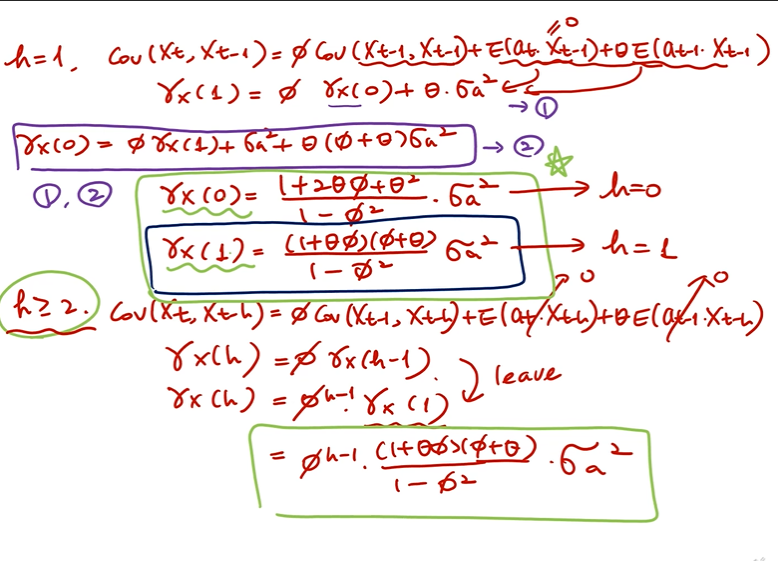 h=1, Cov(Xt, Xt-1) = ϕ Cov(Xt-1, Xt-1) + E(at. Xt-1) + θ E(at-1. Xt-1)
=0
γx(1) = ϕ γx(0) + θ. σa² → ①
γx(0) = ϕ γx(1) + σa² + θ(ϕ+θ)σa² → ②
①, ②
γx(0) = (1+2θϕ+θ²)/(1-ϕ²) . σa² → h=0
γx(1) = (1+θϕ)(ϕ+θ)/(1-ϕ²) σa² → h=1
h≥2. Cov(Xt, Xt-h) = ϕ Cov(Xt-1, Xt-h) + E(at. Xt-h) → 0 + θ E(at-1. Xt-h) → 0
γx(h) = ϕ γx(h-1).
leave
γx(h) = ϕ^h-1. γx(1)
= ϕ^h-1. (1+θϕ)(ϕ+θ)/(1-ϕ²) . σa²